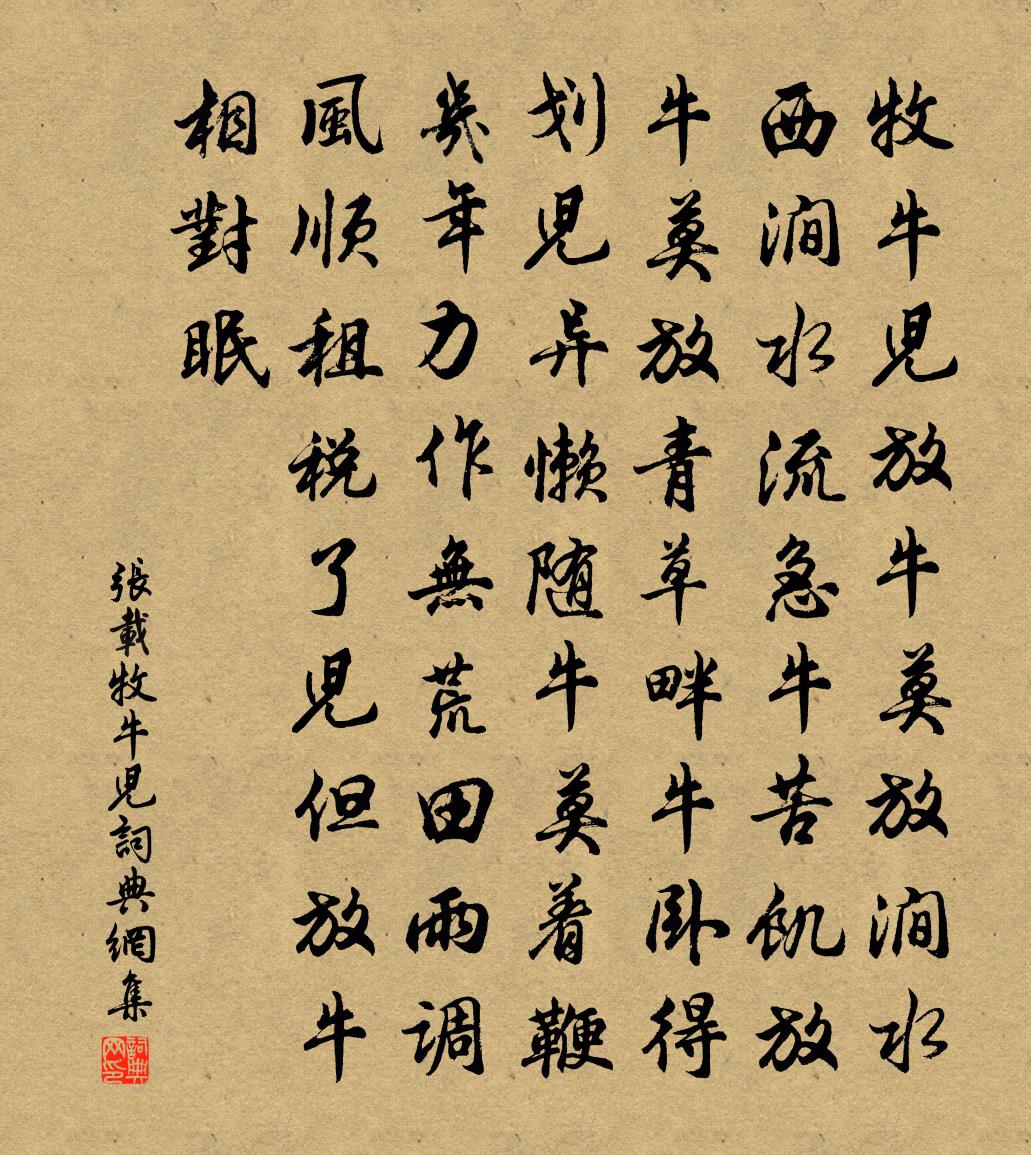 牧牛兒放牛莫放澗水
西澗水流急牛苦飢放
牛莫放青草畔牛卧得
划兒异懒随牛莫着鞭
幾年力作無荒田雨调
風顺租税了兒但放牛
相對眠
張載牧牛兒詞典網集
詞典网印